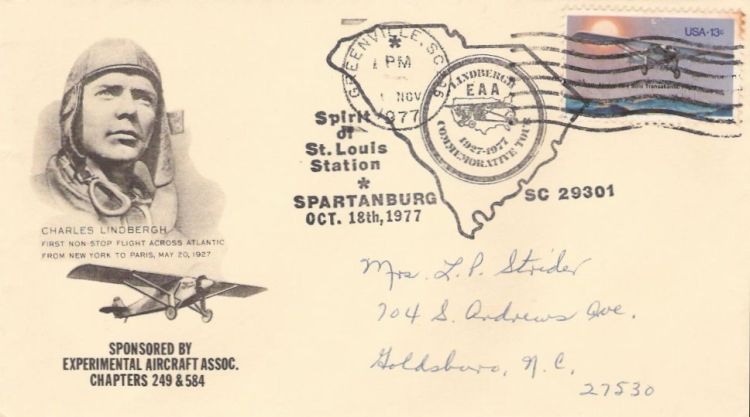 USA·13c
GREENVILLE, SC 296
PM
NOV
1977
LINDBERGH
EAA
1927-1977
COMMEMORATIVE TOUR
Spirit
of
St. Louis
Station
*
SPARTANBURG
OCT. 18th, 1977
SC 29301
CHARLES LINDBERGH
FIRST NON-STOP FLIGHT ACROSS ATLANTIC
FROM NEW YORK TO PARIS, MAY 20, 1927
SPONSORED BY
EXPERIMENTAL AIRCRAFT ASSOC.
CHAPTERS 249 & 584
Mrs. L. P. Strider
704 S. Andrews Ave.
Goldsboro, N. C.
27530